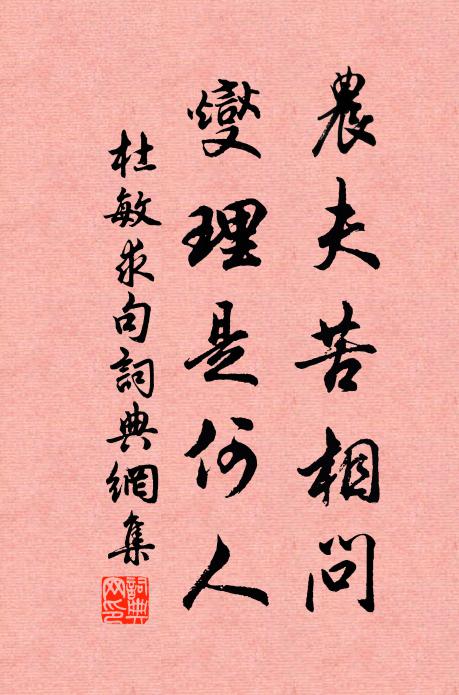 農夫苦相問
燮理是何人
杜敏求句詞典網集
詞典
网印